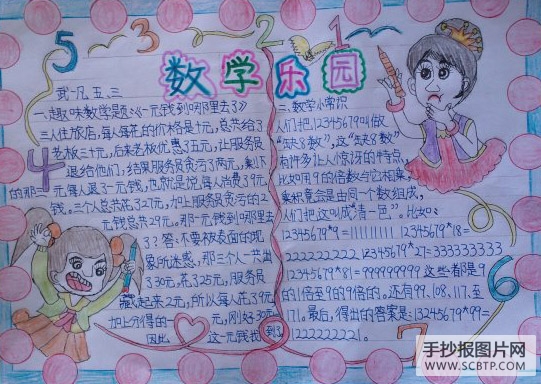 5 3 2 1
数学乐园
武一凡 五、三
一、趣味数学题:《一元钱到哪里去了》
三人住旅店,每人每花的价格是十元,总共给了
老板三十元,后来老板优惠了五元,让服务员
退给他们,结果服务员贪污了两元,剩下
的那三元每人退了一元钱,也就是说,每人消费了9元
钱。三个人总共花了27元,加上服务员贪污的2
元钱总共29元。那一元钱到哪里去
了?答:不要被表面的现
象所迷惑,那三个人一共出
了30元,花了25元,服务员
藏起来2元,所以每人花了9元,
加上分得的一元,刚好30元
因此这一元钱找到了
4
二、数学小常识
人们把12345679叫做
“缺8数”,这“缺8数”
有许多让人惊讶的特点,
比如用9的倍数与它相乘,
乘积竟会是由同一个数组成,
人们把这叫做“清一色”。比如:
12345679*9=111111111 12345679*18=
222222222 12345679*27=333333333
12345679*81=999999999 这些都是9
的1倍至9的9倍的。还有99、108、117、至
171。最后,得出的答案是:12345679*99=
1222222221。
6
7
手抄报图片网
WWW.SCBTP.COM